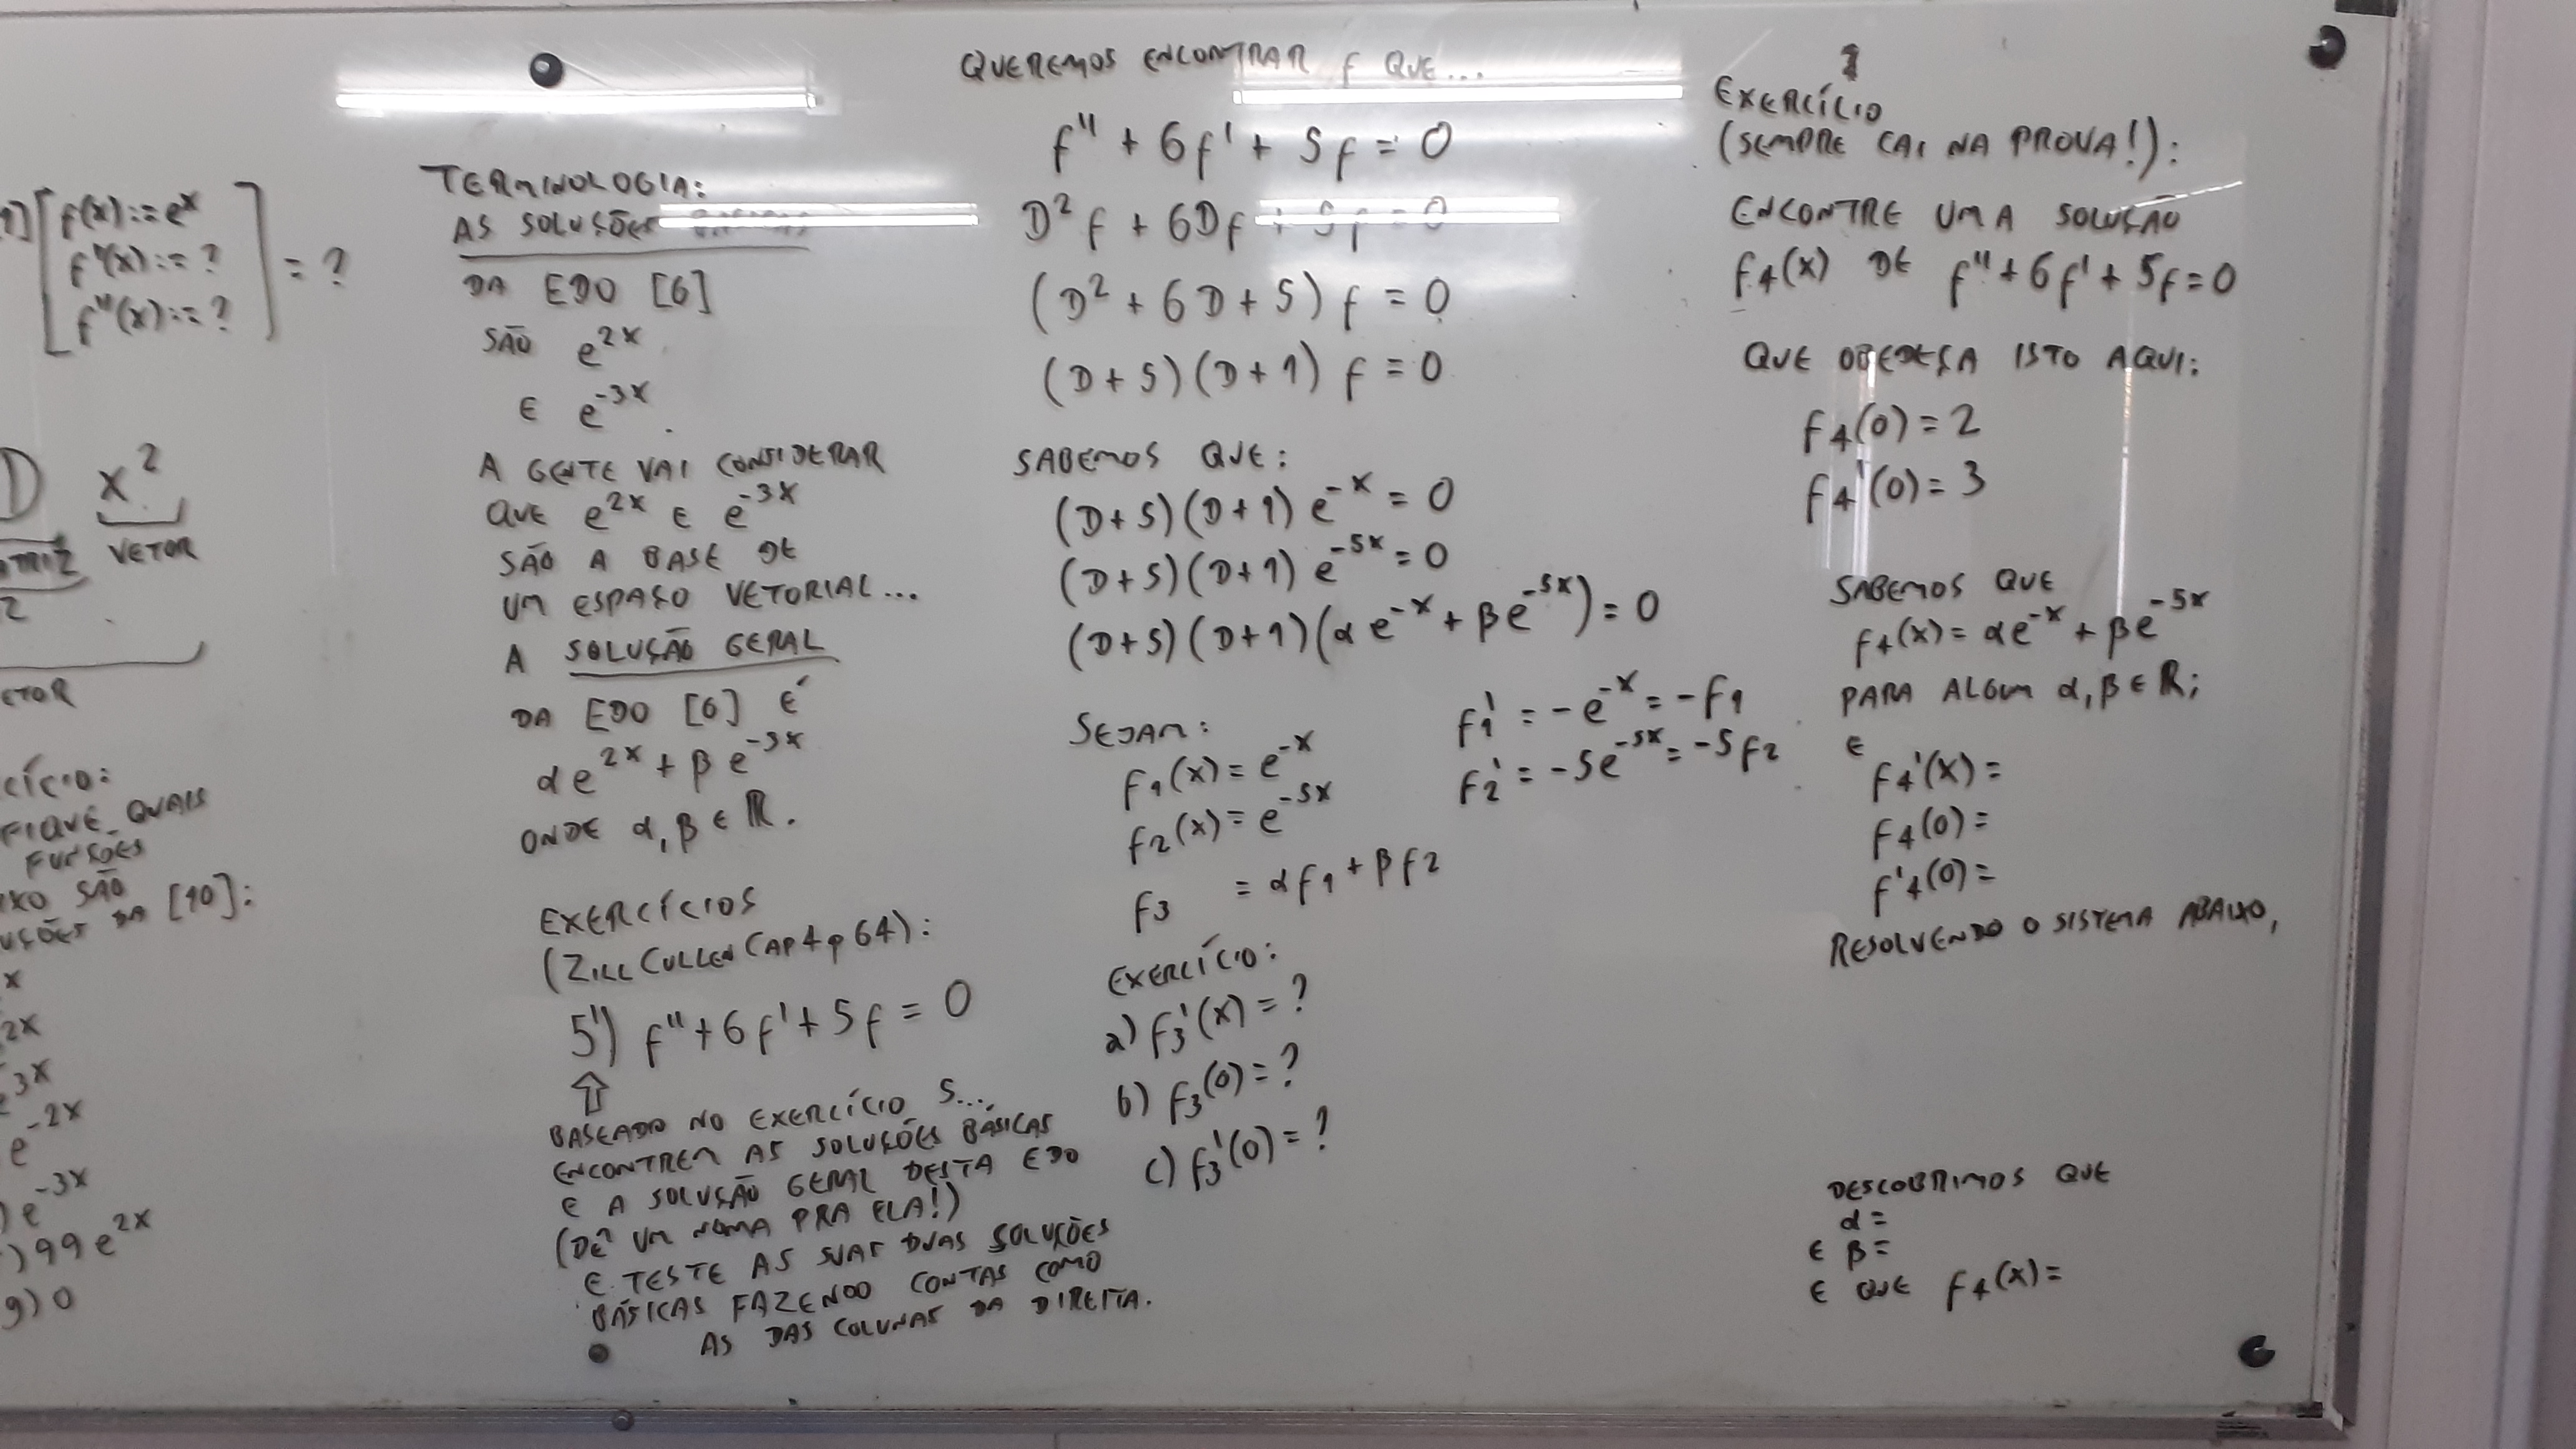 1] f(x):=eˣ
f'(x):=?
f''(x):=?
= ?
D x²
VETOR
2
ETOR
CÍCIO:
FIQUE QUAIS
FUNÇÕES
IXO SÃO
UÇÕES DA [10]:
x
2x
3x
e⁻²ˣ
) e⁻³ˣ
) 99e²ˣ
g) 0
TERMINOLOGIA:
AS SOLUÇÕES
DA EDO [6]
SÃO e²ˣ
E e⁻³ˣ.
A GENTE VAI CONSIDERAR
QUE e²ˣ E e⁻³ˣ
SÃO A BASE DE
UM ESPAÇO VETORIAL...
A SOLUÇÃO GERAL
DA EDO [6] É
αe²ˣ + βe⁻³ˣ
ONDE α, β ∈ ℝ.
EXERCÍCIOS
(ZILLCULLENCAP4p64):
5') f'' + 6f' + 5f = 0
⇧
BASEADO NO EXERCÍCIO 5...
ENCONTREM AS SOLUÇÕES BÁSICAS
E A SOLUÇÃO GERAL DESTA EDO
(DÊ UM NOME PRA ELA!)
E TESTE AS SUAS DUAS SOLUÇÕES
BÁSICAS FAZENDO CONTAS COMO
AS DAS COLUNAS DA DIREITA.
QUEREMOS ENCONTRAR f QUE...
f'' + 6f' + 5f = 0
D²f + 6Df + 5f = 0
(D² + 6D + 5) f = 0
(D+5)(D+1) f = 0
SABEMOS QUE:
(D+5)(D+1) e⁻ˣ = 0
(D+5)(D+1) e⁻⁵ˣ = 0
(D+5)(D+1)(αe⁻ˣ + βe⁻⁵ˣ) = 0
SEJAM:
f₁(x) = e⁻ˣ
f₂(x) = e⁻⁵ˣ
f₃ = αf₁ + βf₂
f₁' = -e⁻ˣ = -f₁
f₂' = -5e⁻⁵ˣ = -5f₂
EXERCÍCIO:
a) f₃'(x) = ?
b) f₃(0) = ?
c) f₃'(0) = ?
EXERCÍCIO
(SEMPRE CAI NA PROVA!):
ENCONTRE UMA SOLUÇÃO
f₄(x) DE f'' + 6f' + 5f = 0
QUE OBEDEÇA ISTO AQUI:
f₄(0) = 2
f₄'(0) = 3
SABEMOS QUE
f₄(x) = αe⁻ˣ + βe⁻⁵ˣ
PARA ALGUM α, β ∈ ℝ;
E
f₄'(x) =
f₄(0) =
f'₄(0) =
RESOLVENDO O SISTEMA ABAIXO,
DESCOBRIMOS QUE
α =
E β =
E QUE f₄(x) =